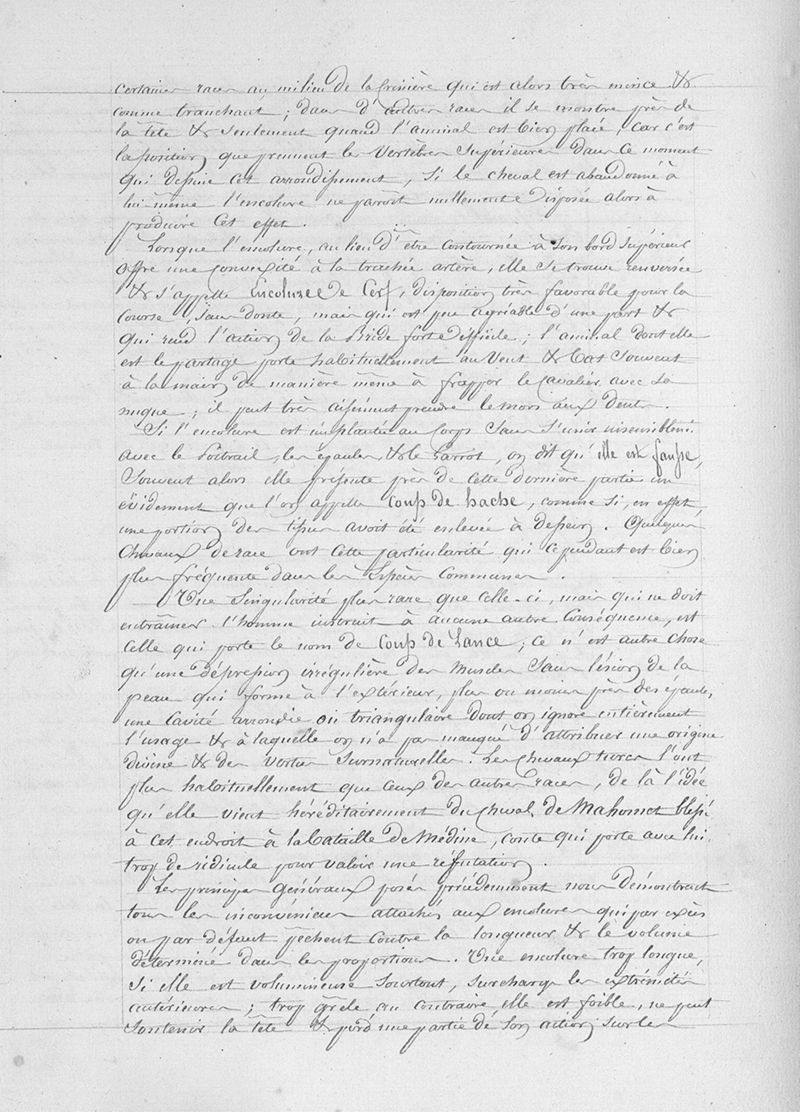 certaines races au milieu de la crinière qui est alors très mince &
comme tranchant ; dans d'autres races il se montre près de
la tête & seulement quand l'animal est bien placé, car c'est
la position que prennent les vertèbres supérieures dans ce moment
qui dessine cet arrondissement, si le cheval est abandonné à
lui même l'encolure ne paroit nullement disposée alors à
produire cet effet.
Lorsque l'encolure, au lieu d'être contournée à son bord supérieur
offre une convexité à la trachée artère, elle se trouve renversée
& s'appelle Encolure de Cerf, disposition très favorable pour la
course, sans doute, mais qui est peu agréable d'une part &
qui rend l'action de la Bride fort difficile ; l'animal dont elle
est le partage porte habituellement au Vent & bat souvent
à la main de manière même à frapper le Cavalier avec sa
nuque ; il peut très aisément prendre le mors aux dents.
Si l'encolure est implantée au Corps sans s'unir insensiblemt.
avec le Poitrail, les épaules & le Garrot, on dit qu'elle est fausse,
Souvent alors elle présente près de cette dernière partie un
évidement que l'on appelle coup de hache, comme si, en effet,
une portion des tissus avoit été enlevée à dessein. Quelques
Chevaux de race ont cette particularité qui cependant est bien
plus fréquente dans les Espèces Communes.
Une Singularité plus rare que celle-ci, mais qui ne doit
entraîner l'homme instruit à aucune autre Conséquence, est
celle qui porte le nom de Coup de Lance ; ce n'est autre chose
qu'une dépression irrégulière des Muscles Sans lésion de la
peau qui forme à l'extérieur, plus ou moins près des épaules,
une Cavité arrondie ou triangulaire dont on ignore entièrement
l'usage & à laquelle on n'a pas manqué d'attribuer une origine
divine & des Vertus Surnaturelles. Les Chevaux turcs l'ont
plus habituellement que ceux des autres races, de là l'idée
qu'elle vient héréditairement du cheval de Mahomet blessé
à cet endroit à la bataille de Médine, conte qui porte avec lui
trop de ridicule pour valoir une réfutation.
Les principes généraux posés précédemment nous démontrent
tous les inconvéniens attachés aux encolures qui par excès
ou par défaut pèchent contre la longueur & le volume
déterminé dans les proportions. Une encolure trop longue,
Si elle est volumineuse Sourtout, surcharge les extrémités
antérieures ; trop grêle au contraire, elle est foible, ne peut
Soutenir la tête & perd une partie de son action sur les